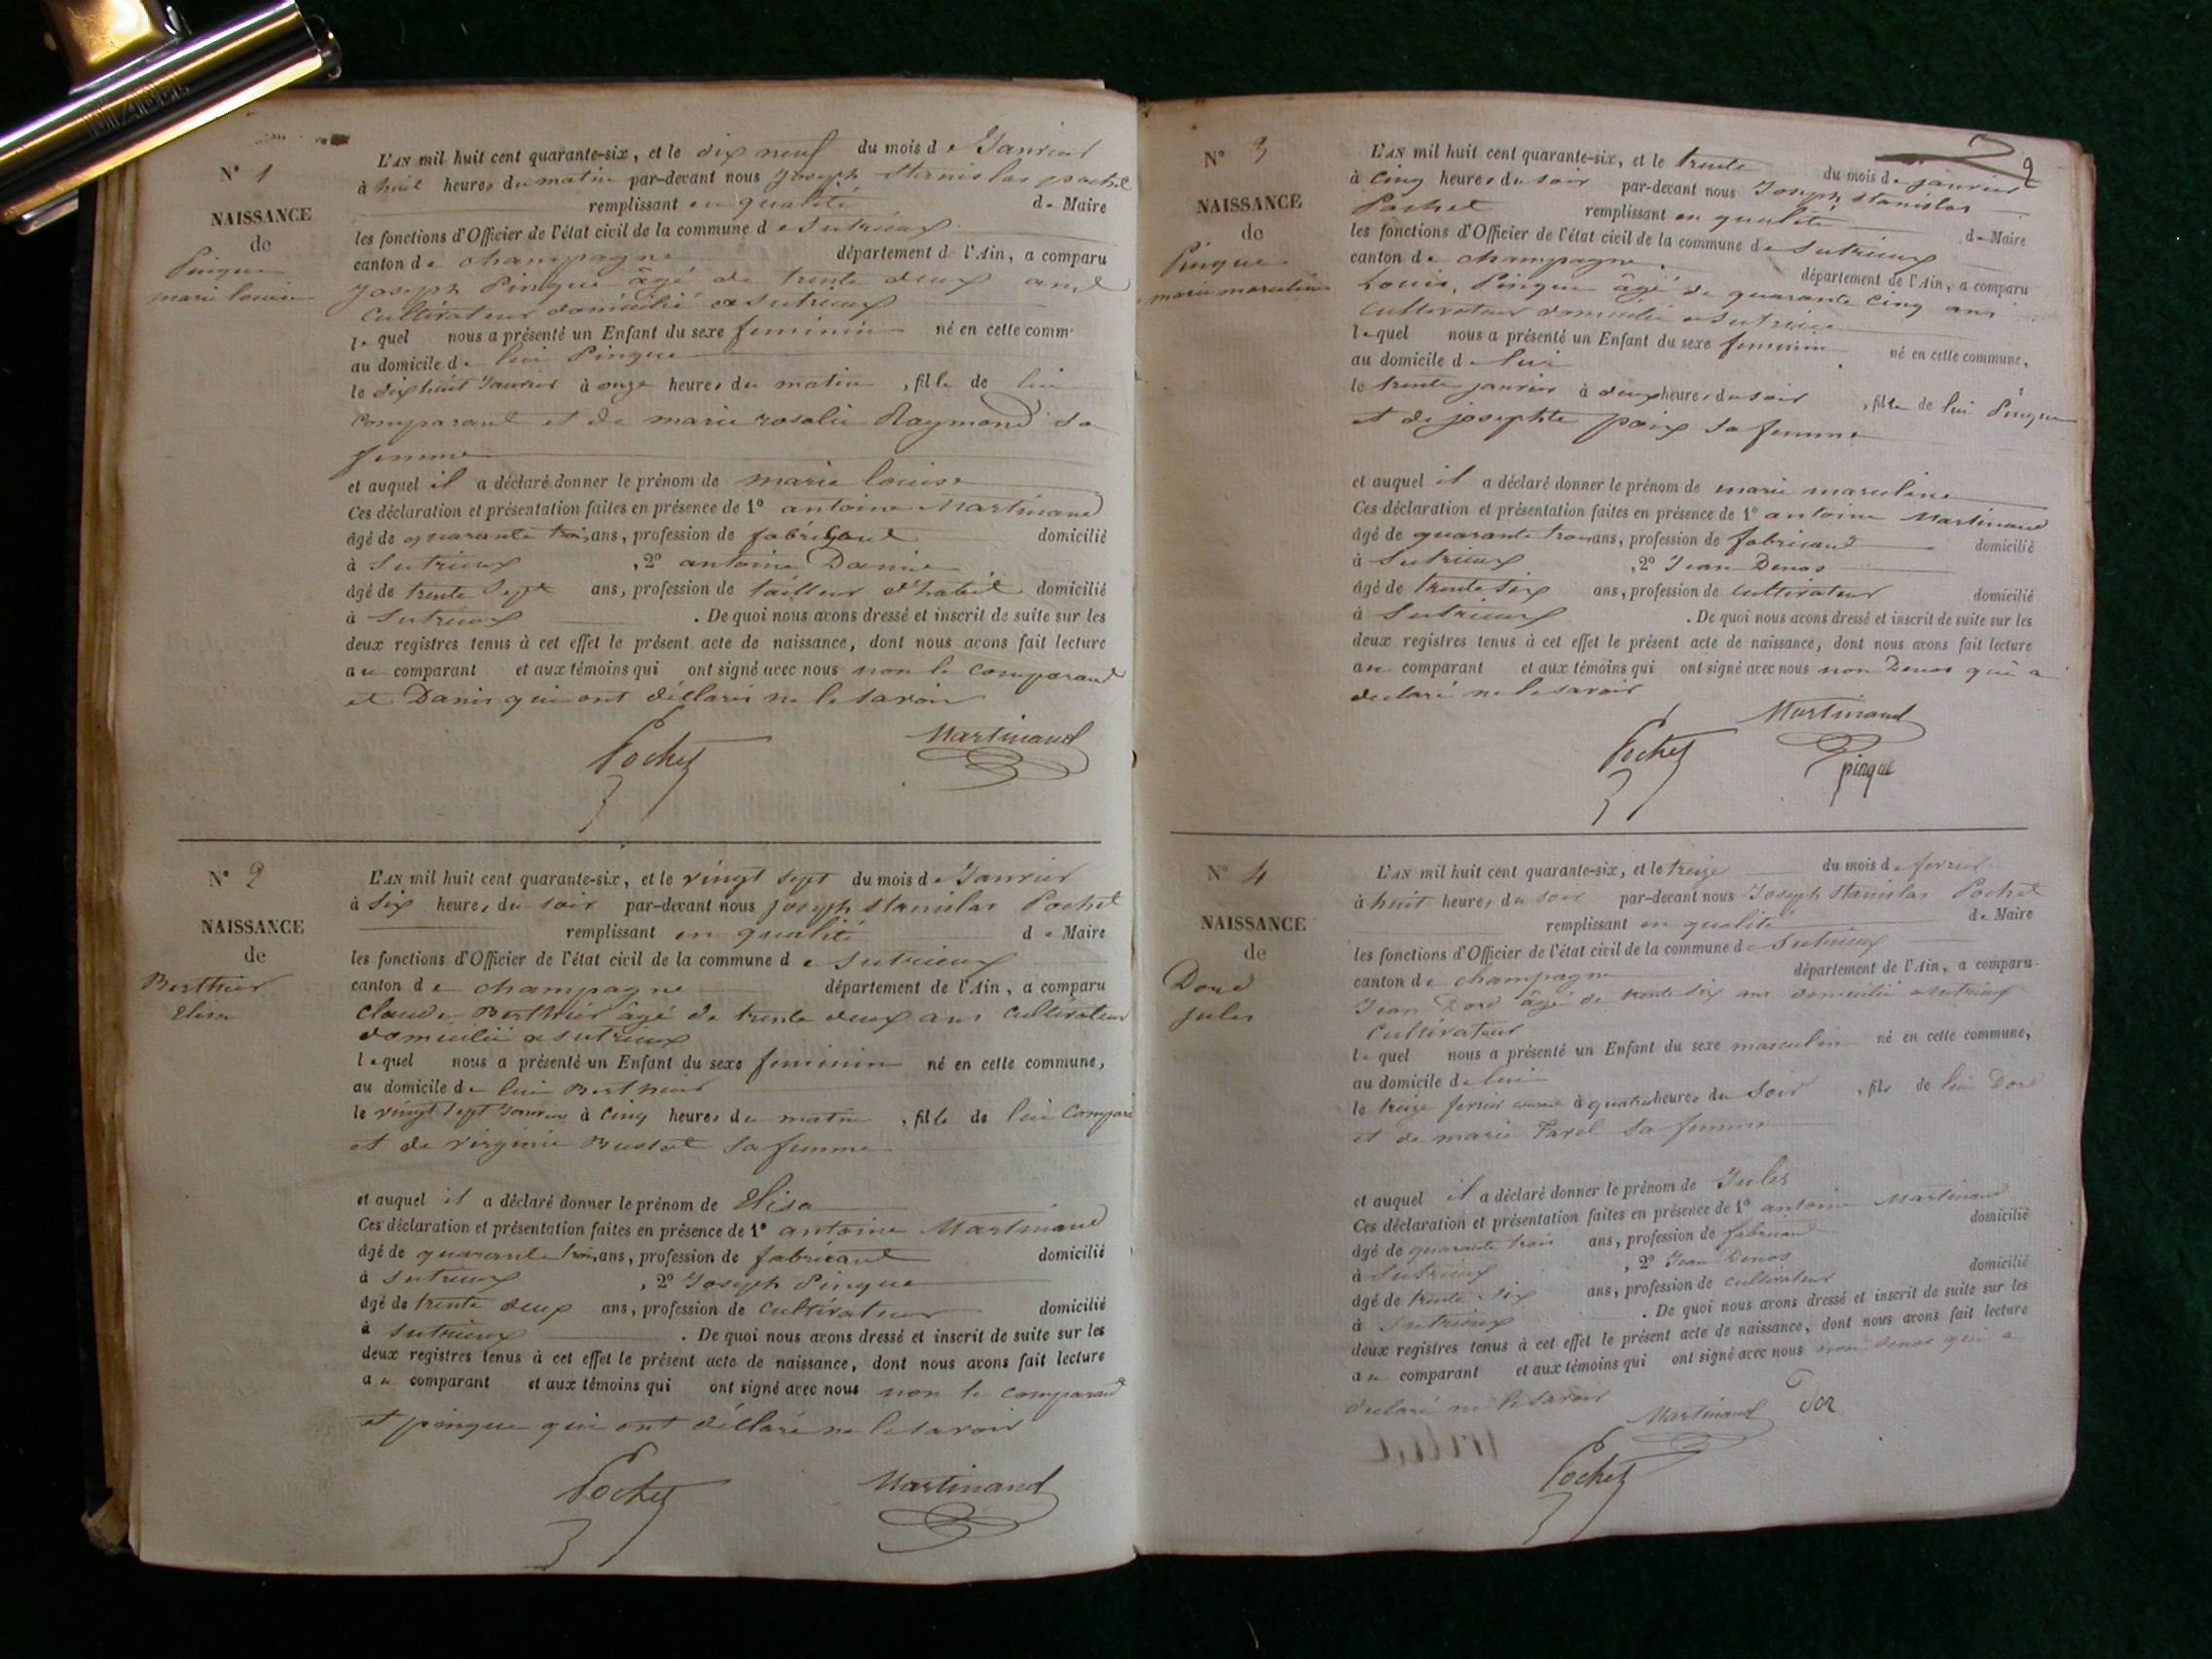 N° 1
NAISSANCE
de
Pingue
marie louise
L'AN mil huit cent quarante-six, et le dix neuf du mois de Janvier
à huit heures du matin par-devant nous Joseph Stanislas pochet
remplissant en qualité de Maire
les fonctions d'Officier de l'état civil de la commune de Sutrieux
canton de champagne département de l'Ain, a comparu
Joseph Pingue âgé de trente deux ans
cultivateur domicilié a Sutrieux
lequel nous a présenté un Enfant du sexe feminin né en cette comm.
au domicile de lui Pingue
le dix huit Janvier à onze heures du matin, fille de lui
comparant et de marie rosalie Raymond sa
femme
et auquel il a déclaré donner le prénom de marie louise
Ces déclaration et présentation faites en présence de 1° antoine Martinand
âgé de quarante trois ans, profession de fabricant domicilié
à Sutrieux, 2° antoine Danis
âgé de trente sept ans, profession de tailleur d'habit domicilié
à Sutrieux. De quoi nous avons dressé et inscrit de suite sur les
deux registres tenus à cet effet le présent acte de naissance, dont nous avons fait lecture
au comparant et aux témoins qui ont signé avec nous non le comparant
et Danis qui ont déclarés ne le savoir
Pochet Martinand
N° 2
NAISSANCE
de
Berthier
Elisa
L'AN mil huit cent quarante-six, et le vingt sept du mois de Janvier
à six heures du soir par-devant nous joseph stanislas Pochet
remplissant en qualité de Maire
les fonctions d'Officier de l'état civil de la commune de Sutrieux
canton de champagne département de l'Ain, a comparu
claude Berthier âgé de trente deux ans cultivateur
domicilié a sutrieux
lequel nous a présenté un Enfant du sexe feminin né en cette commune,
au domicile de lui Berthier
le vingt sept Janvier à cinq heures du matin, fille de lui compara
et de virginie Bussot sa femme
et auquel il a déclaré donner le prénom de Elisa
Ces déclaration et présentation faites en présence de 1° antoine Martinand
âgé de quarante trois ans, profession de fabricant domicilié
à Sutrieux, 2° Joseph Pingue
âgé de trente deux ans, profession de cultivateur domicilié
à sutrieux. De quoi nous avons dressé et inscrit de suite sur les
deux registres tenus à cet effet le présent acte de naissance, dont nous avons fait lecture
au comparant et aux témoins qui ont signé avec nous non le comparant
et pingue qui ont déclaré ne le savoir
Pochet Martinand
2
N° 3
NAISSANCE
de
Pingue
marie marceline
L'AN mil huit cent quarante-six, et le trente du mois de janvier
à cinq heures du soir par-devant nous Joseph stanislas
Pochet remplissant en qualité de Maire
les fonctions d'Officier de l'état civil de la commune de Sutrieux
canton de champagne département de l'Ain, a comparu
Louis, Pingue âgé de quarante cinq ans
cultivateur domicilié a Sutrieux
lequel nous a présenté un Enfant du sexe feminin né en cette commune,
au domicile de lui
le trente janvier à deux heures du soir, fille de lui Pingue
et de josephte paix sa femme
et auquel il a déclaré donner le prénom de marie marceline
Ces déclaration et présentation faites en présence de 1° antoine Martinand
âgé de quarante trois ans, profession de fabricant domicilié
à Sutrieux, 2° Jean Denos
âgé de trente six ans, profession de cultivateur domicilié
à Sutrieux. De quoi nous avons dressé et inscrit de suite sur les
deux registres tenus à cet effet le présent acte de naissance, dont nous avons fait lecture
au comparant et aux témoins qui ont signé avec nous non Denos qui a
declaré ne le savoir
Pochet Martinand
pingue
N° 4
NAISSANCE
de
Doré
jules
L'AN mil huit cent quarante-six, et le treize du mois de fevrier
à huit heures du soir par-devant nous Joseph Stanislas Pochet
remplissant en qualité de Maire
les fonctions d'Officier de l'état civil de la commune de Sutrieux
canton de champagne département de l'Ain, a comparu
Jean Doré âgé de trente six ans domicilié a sutrieux
cultivateur
lequel nous a présenté un Enfant du sexe masculin né en cette commune,
au domicile de lui
le treize fevrier courant à quatre heures du soir, fils de lui Doré
et de marie Favel sa femme
et auquel il a déclaré donner le prénom de Jules
Ces déclaration et présentation faites en présence de 1° antoine Martinand
âgé de quarante trois ans, profession de fabricant domicilié
à Sutrieux, 2° Jean Denos
âgé de trente six ans, profession de cultivateur domicilié
à Sutrieux. De quoi nous avons dressé et inscrit de suite sur les
deux registres tenus à cet effet le présent acte de naissance, dont nous avons fait lecture
au comparant et aux témoins qui ont signé avec nous non denos qui a
declaré ne le savoir
Martinand
Pochet